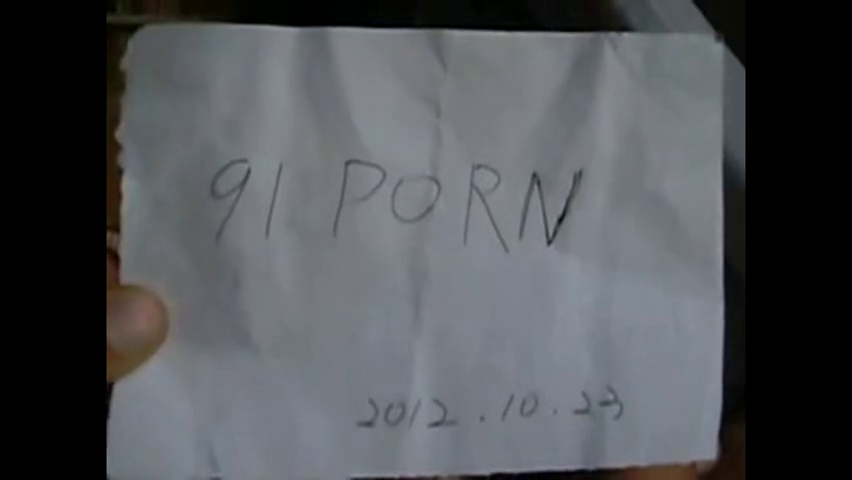 91 PORN
2012.10.23